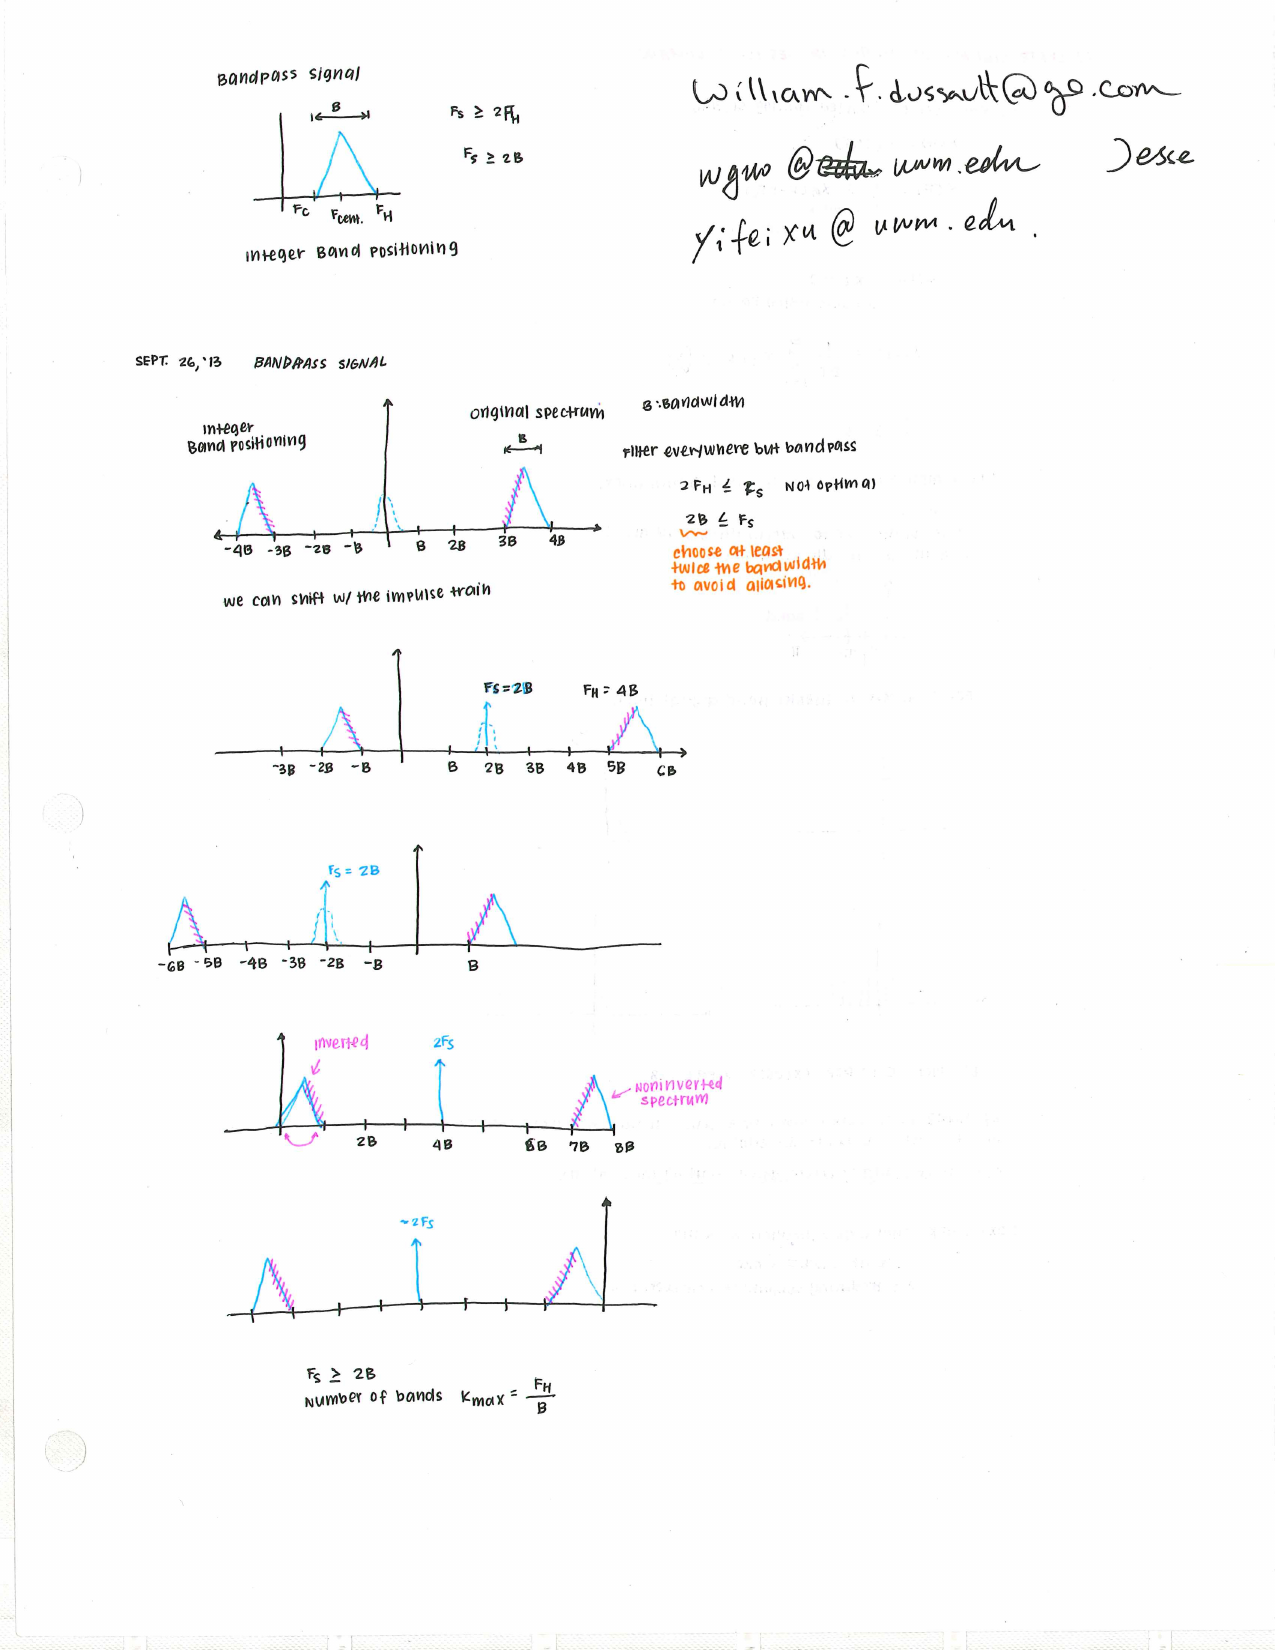 Bandpass signal
B
Fs ≥ 2FH
Fs ≥ 2B
Fc Fcent. FH
Integer Band positioning
william.f.dussault@ge.com
wguo @ uwm.edu Jesse
yifeixu@uwm.edu.
SEPT. 26, '13 BANDPASS SIGNAL
Integer
Band positioning
original spectrum
B
B: Bandwidth
Filter everywhere but bandpass
2FH ≤ Fs Not optimal
2B ≤ Fs
choose at least
twice the bandwidth
to avoid aliasing.
-4B -3B -2B -B B 2B 3B 4B
we can shift w/ the impulse train
Fs=2B FH = 4B
-3B -2B -B B 2B 3B 4B 5B 6B
Fs = 2B
-6B -5B -4B -3B -2B -B B
inverted 2Fs
Noninverted
spectrum
2B 4B 6B 7B 8B
-2Fs
Fs ≥ 2B
Number of bands Kmax = FH
B